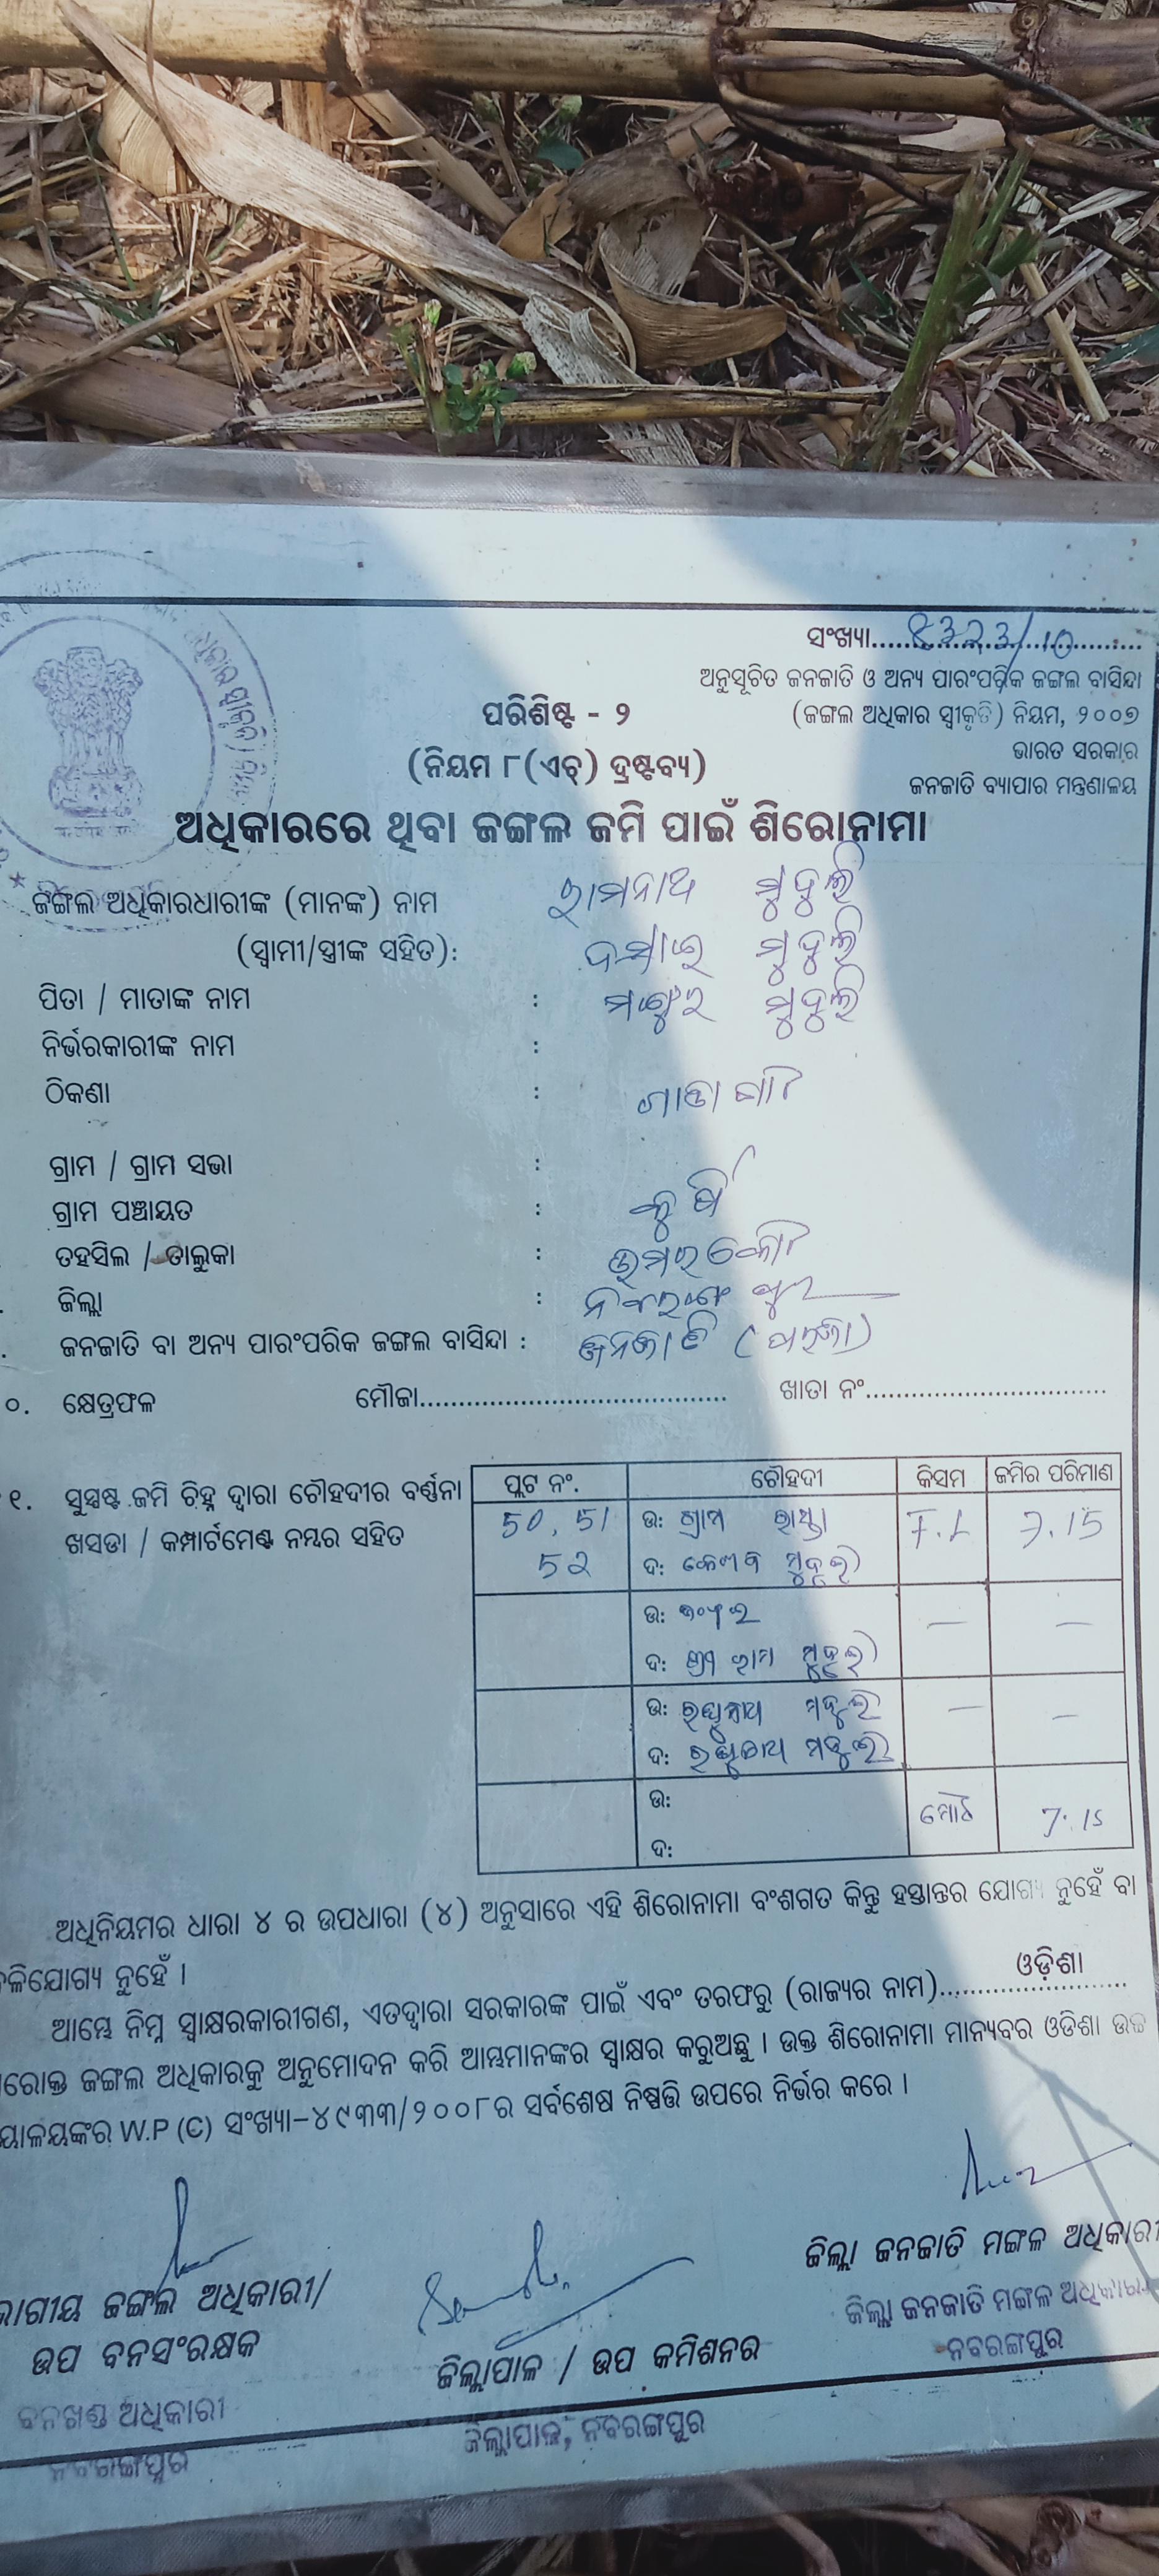 ସଂଖ୍ୟା........8323/10........
ଅନୁସୂଚିତ ଜନଜାତି ଓ ଅନ୍ୟ ପାରଂପରିକ ଜଙ୍ଗଲ ବାସିନ୍ଦା
ପରିଶିଷ୍ଟ - ୨
(ଜଙ୍ଗଲ ଅଧିକାର ସ୍ୱୀକୃତି) ନିୟମ, ୨୦୦୭
ଭାରତ ସରକାର
(ନିୟମ ୮(ଏଚ୍) ଦ୍ରଷ୍ଟବ୍ୟ)
ଜନଜାତି ବ୍ୟାପାର ମନ୍ତ୍ରଣାଳୟ
ଅଧିକାରରେ ଥିବା ଜଙ୍ଗଲ ଜମି ପାଇଁ ଶିରୋନାମା
ଜଙ୍ଗଲ ଅଧିକାରଧାରୀଙ୍କ (ମାନଙ୍କ) ନାମ ରାମନାଥ ମୁଦୁଲି
(ସ୍ୱାମୀ/ସ୍ତ୍ରୀଙ୍କ ସହିତ): ମୁଦୁଲି
ପିତା / ମାତାଙ୍କ ନାମ : ମୁଦୁଲି
ନିର୍ଭରକାରୀଙ୍କ ନାମ :
ଠିକଣା :
ଗ୍ରାମ / ଗ୍ରାମ ସଭା :
ଗ୍ରାମ ପଞ୍ଚାୟତ :
ତହସିଲ / ତାଲୁକା : ଉମରକୋଟ
ଜିଲ୍ଲା : ନବରଙ୍ଗପୁର
ଜନଜାତି ବା ଅନ୍ୟ ପାରଂପରିକ ଜଙ୍ଗଲ ବାସିନ୍ଦା : ଜନଜାତି
୦. କ୍ଷେତ୍ରଫଳ ମୌଜା........ ଖାତା ନଂ........
୧. ସୁସ୍ପଷ୍ଟ ଜମି ଚିହ୍ନ ଦ୍ୱାରା ଚୌହଦୀର ବର୍ଣ୍ଣନା
ଖସଡା / କମ୍ପାର୍ଟମେଣ୍ଟ ନମ୍ବର ସହିତ
ପ୍ଲଟ ନଂ. ଚୌହଦୀ କିସମ ଜମିର ପରିମାଣ
50, 51 ଉ: ଗ୍ରାମ ରାସ୍ତା F.L 7.15
52 ଦ: କେଶବ ମୁଦୁଲି
ଉ: ଜଂଗଲ — —
ଦ: ଶ୍ରୀ ରାମ ମୁଦୁଲି
ଉ: ରଘୁନାଥ ମଦୁଲି — —
ଦ: ରଘୁନାଥ ମଦୁଲି
ଉ: ମୋଟ 7.15
ଦ:
ଅଧିନିୟମର ଧାରା ୪ ର ଉପଧାରା (୪) ଅନୁସାରେ ଏହି ଶିରୋନାମା ବଂଶଗତ କିନ୍ତୁ ହସ୍ତାନ୍ତର ଯୋଗ୍ୟ ନୁହେଁ ବା
ଳିଯୋଗ୍ୟ ନୁହେଁ ।
ଆମ୍ଭେ ନିମ୍ନ ସ୍ୱାକ୍ଷରକାରୀଗଣ, ଏତଦ୍ୱାରା ସରକାରଙ୍କ ପାଇଁ ଏବଂ ତରଫରୁ (ରାଜ୍ୟର ନାମ)....ଓଡ଼ିଶା....
ରୋକ୍ତ ଜଙ୍ଗଲ ଅଧିକାରକୁ ଅନୁମୋଦନ କରି ଆମ୍ଭମାନଙ୍କର ସ୍ୱାକ୍ଷର କରୁଅଛୁ । ଉକ୍ତ ଶିରୋନାମା ମାନ୍ୟବର ଓଡିଶା ଉଚ୍ଚ
ୟାଳୟଙ୍କର W.P (C) ସଂଖ୍ୟା-୪୯୩୩/୨୦୦୮ର ସର୍ବଶେଷ ନିଷ୍ପତ୍ତି ଉପରେ ନିର୍ଭର କରେ ।
ଜିଲ୍ଲା ଜନଜାତି ମଙ୍ଗଳ ଅଧିକାରୀ
ଜିଲ୍ଲା ଜନଜାତି ମଙ୍ଗଳ ଅଧିକାରୀ
ନବରଙ୍ଗପୁର
ଭାଗୀୟ ଜଙ୍ଗଲ ଅଧିକାରୀ/
ଉପ ବନସଂରକ୍ଷକ
ଜିଲ୍ଲାପାଳ / ଉପ କମିଶନର
ବନଖଣ୍ଡ ଅଧିକାରୀ
ନବରଙ୍ଗପୁର
ଜିଲ୍ଲାପାଳ, ନବରଙ୍ଗପୁର